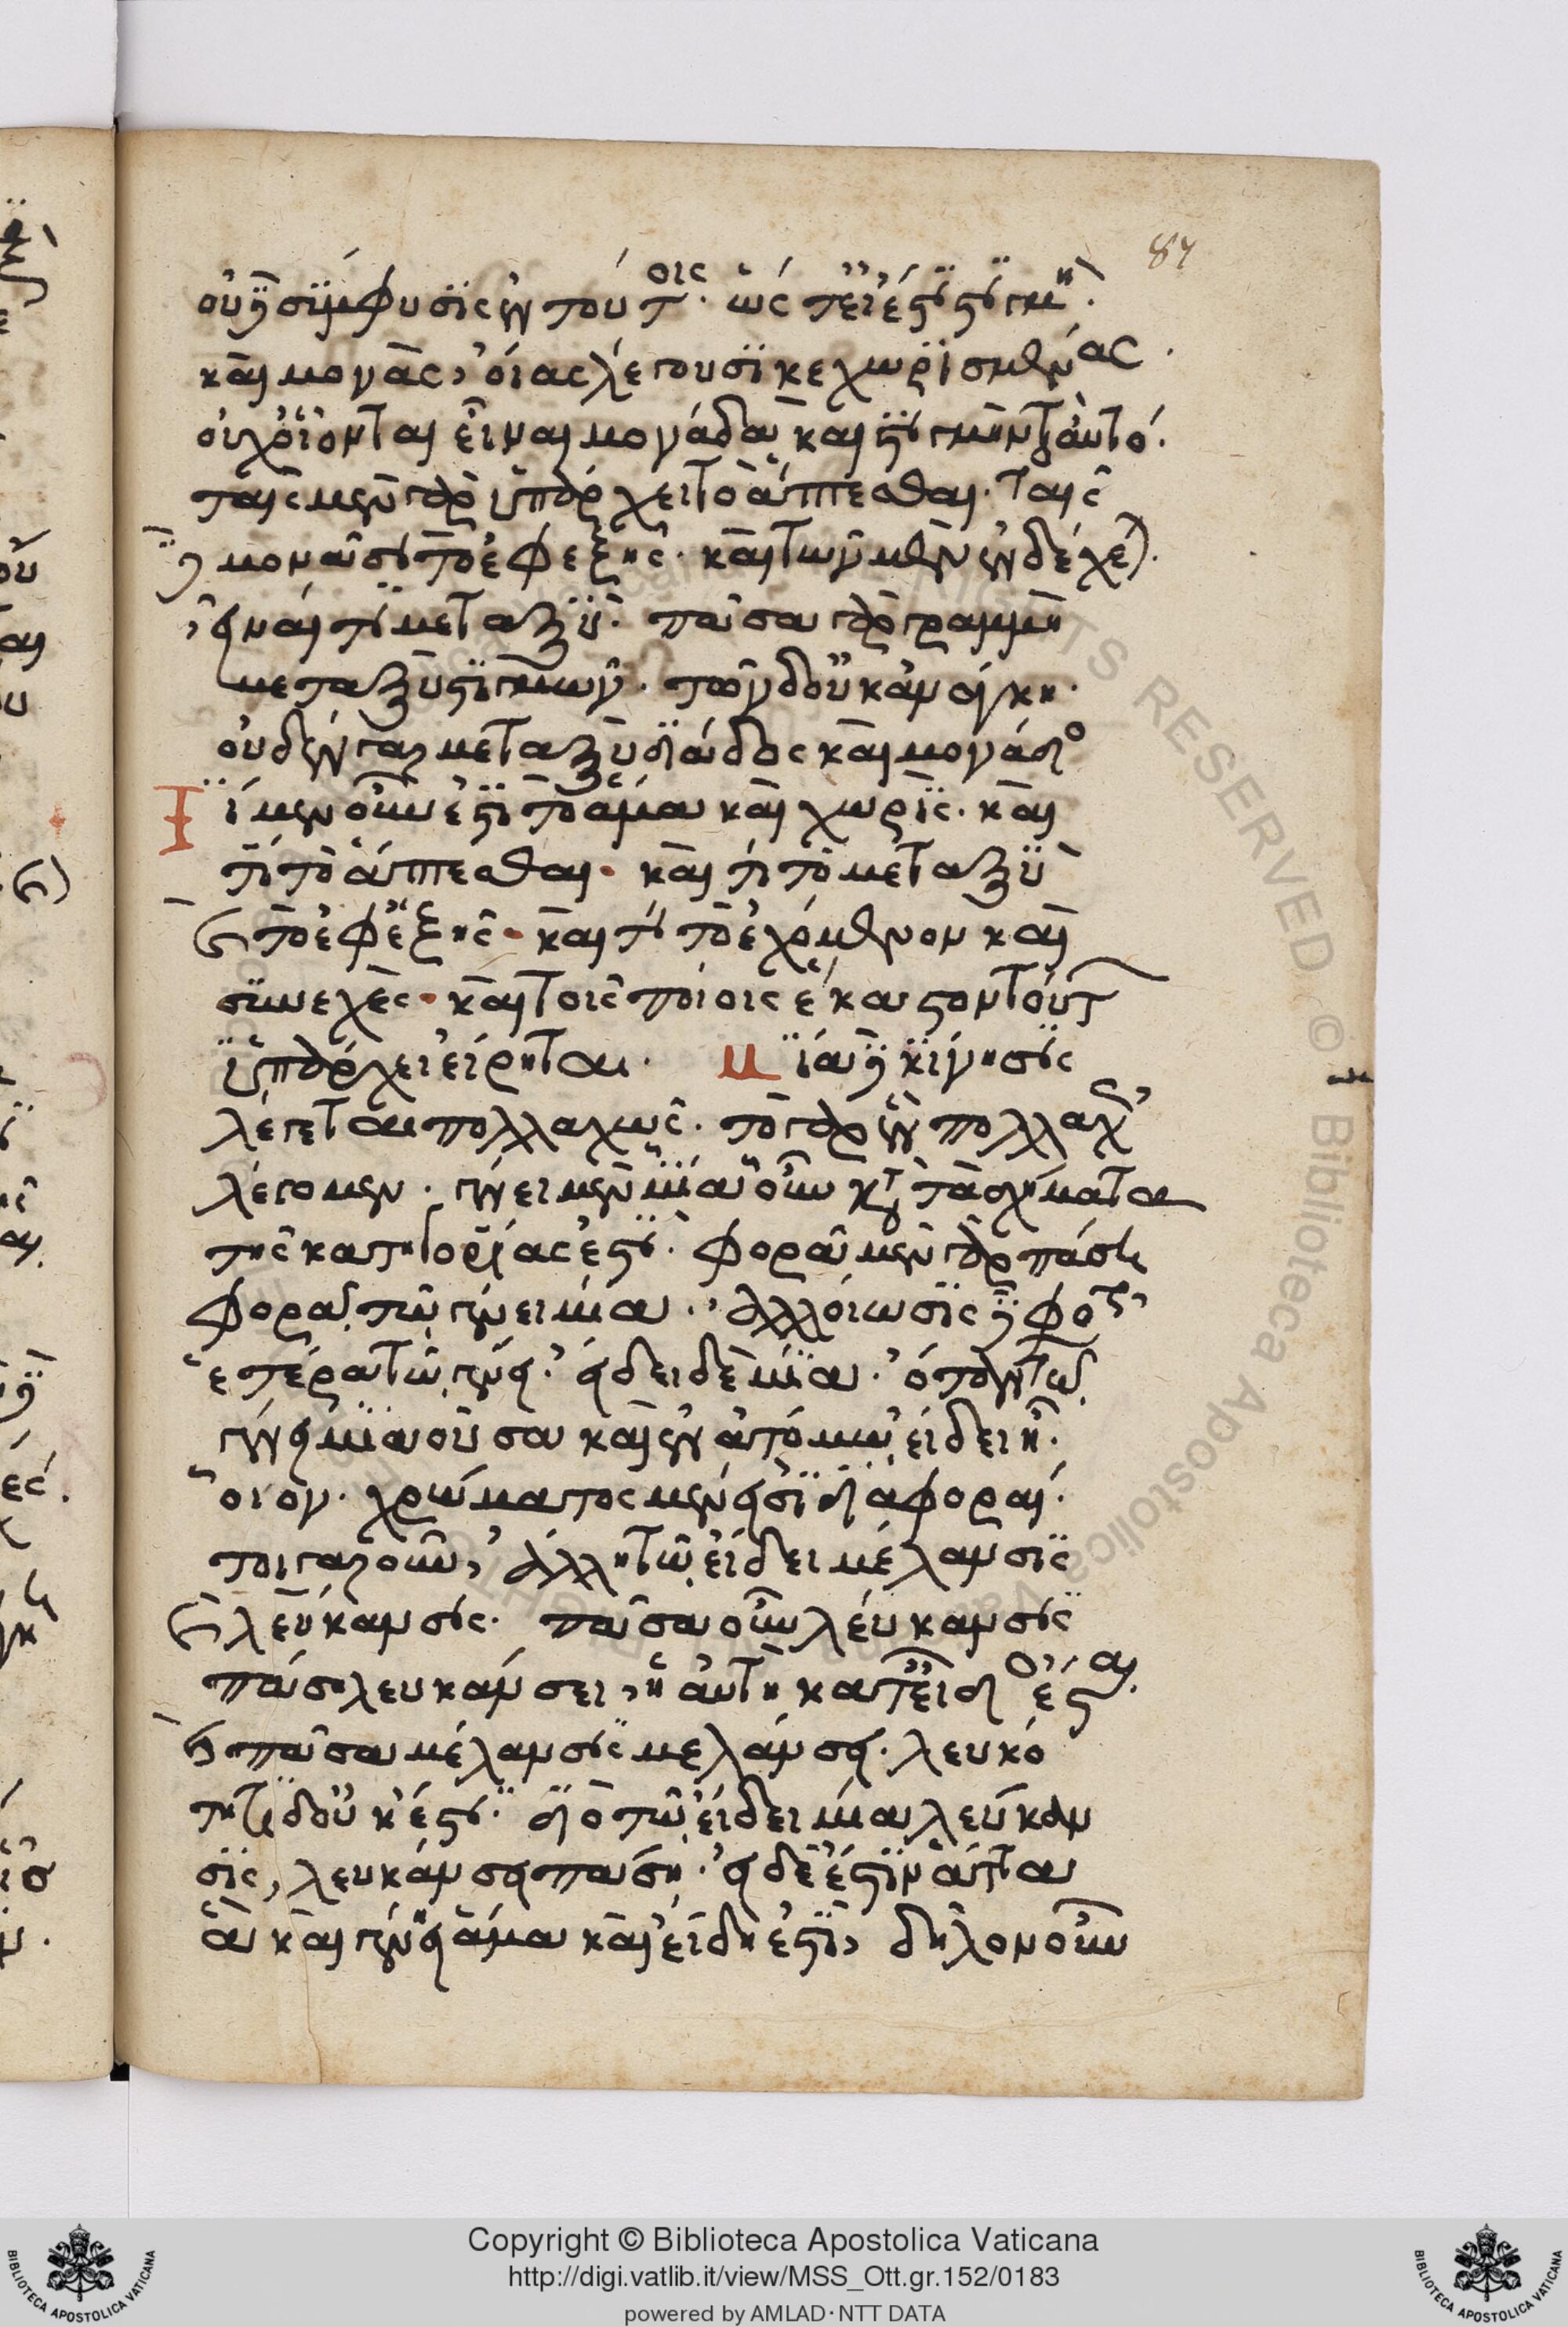 87
οὐ δὲ σύμφυσις ἐν τούτοις. ὥς τ' εἰ ἔστι στιγμὴ.
καὶ μονὰς, οἵας λέγουσι κεχωρισμένας.
οὐχ οἷόν τ' εἶναι μονάδα καὶ στιγμὴν τ' αὐτό.
ταῖς μὲν γὰρ ὑπάρχει τὸ ἅπτεσθαι. ταῖς
δὲ μονάσι τὸ ἐφεξῆς. καὶ τῶν μὲν ἐνδέχεται.
εἶναί τι μεταξύ. πᾶσα γὰρ γραμμὴ
μεταξὺ στιγμῶν. τῶν δ' οὐκ ἀνάγκη.
οὐδὲν γὰρ μεταξὺ δυάδος καὶ μονάδος
Τί μὲν οὖν ἐστι τὸ ἅμα καὶ χωρίς. καὶ
τί τὸ ἅπτεσθαι. καὶ τί τὸ μεταξὺ
καὶ τὸ ἐφεξῆς. καὶ τί τὸ ἐχόμενον καὶ
συνεχές. καὶ τοῖς ποίοις ἕκαστον τούτων
ὑπάρχει εἴρηται. Μία δὲ κίνησις
λέγεται πολλαχῶς. τὸ γὰρ ἓν πολλαχῶς
λέγομεν. γένει μὲν μία οὖν κατὰ τὰ σχήματα
τῆς κατηγορίας ἐστί. φορὰ μὲν γὰρ πάσῃ
φορᾷ τῷ γένει μία. ἀλλοίωσις δὲ φορᾶς
ἑτέρα τῷ γένει. εἴδει δὲ μία. ὅταν τῷ
γένει μία οὖσα καὶ ἐν ἀτόμῳ εἴδει ᾖ.
οἷον. χρώματος μὲν εἰσὶ διαφοραί.
τοιγαροῦν, ἄλλη τῷ εἴδει μέλανσις
καὶ λεύκανσις. πᾶσα οὖν λεύκανσις
πάσῃ λευκάνσει, ἡ αὐτὴ κατ' εἶδος ἔσται.
καὶ πᾶσα μέλανσις μελάνσει. λευκό
τητι δ' οὐκέτι. διὸ τῷ εἴδει μία λεύκαν
σις, λευκάνσει πάσῃ. εἰ δέ ἐστιν ἅττα
ἃ καὶ γένει ἅμα καὶ εἴδη ἐστὶ, δῆλον οὖν
Copyright © Biblioteca Apostolica Vaticana
http://digi.vatlib.it/view/MSS_Ott.gr.152/0183
powered by AMLAD·NTT DATA